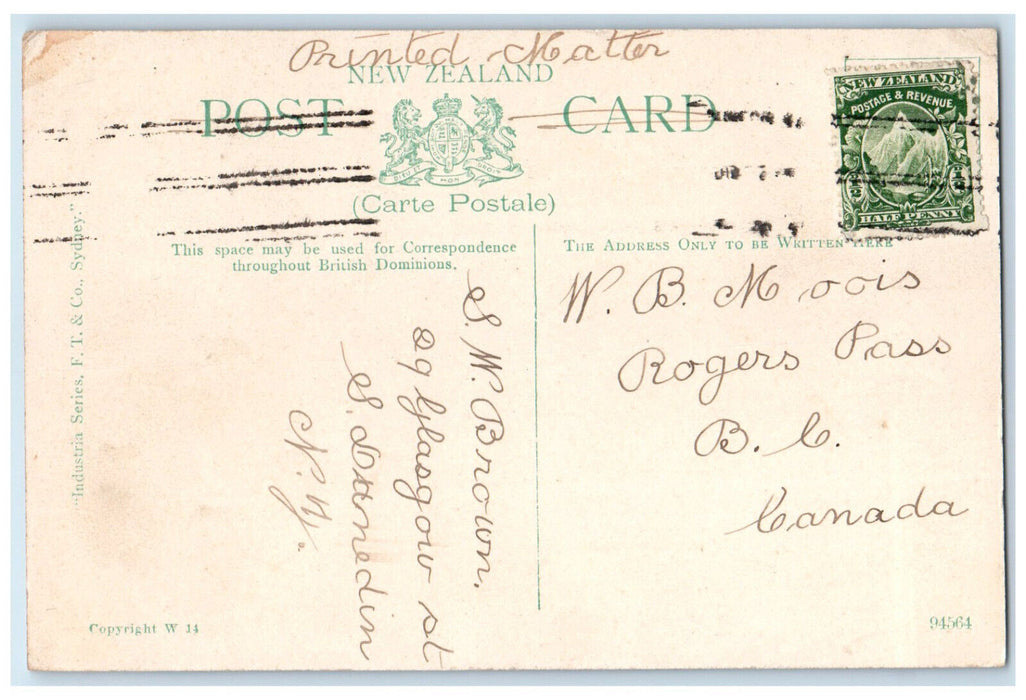 Printed Matter
NEW ZEALAND
POST CARD
DIEU ET MON DROIT
(Carte Postale)
NEW ZEALAND
POSTAGE & REVENUE
HALF PENNY
This space may be used for Correspondence
throughout British Dominions.
THE ADDRESS ONLY TO BE WRITTEN HERE
"Industria Series, F. T. & Co., Sydney."
S. W. Brown.
29 Glasgow st
S. Dunedin
N. Z.
W. B. Moois
Rogers Pass
B. C.
Canada
Copyright W 14
94564